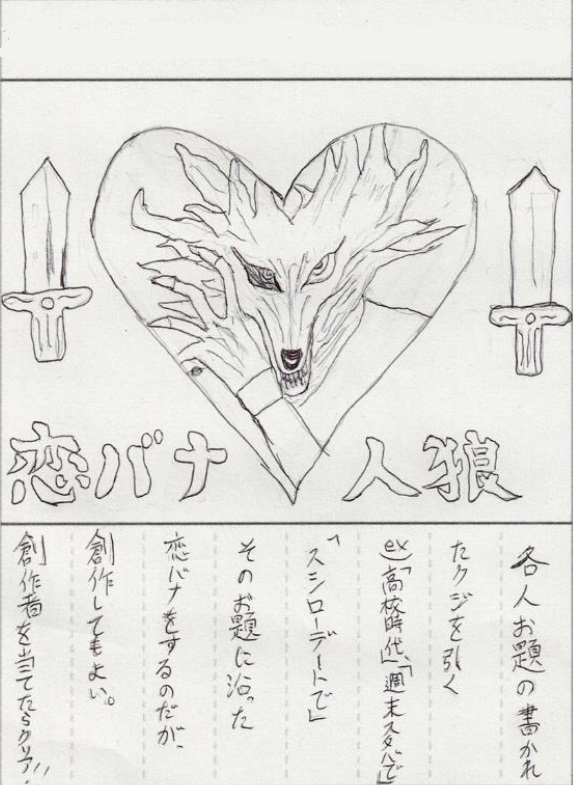 恋バナ人狼
各人お題の書かれ
たクジを引く
ex)「高校時代」、「週末スタバで」
「スシローデートで」
そのお題に沿った
恋バナをするのだが、
創作してもよい。
創作者を当てたらクリア!!